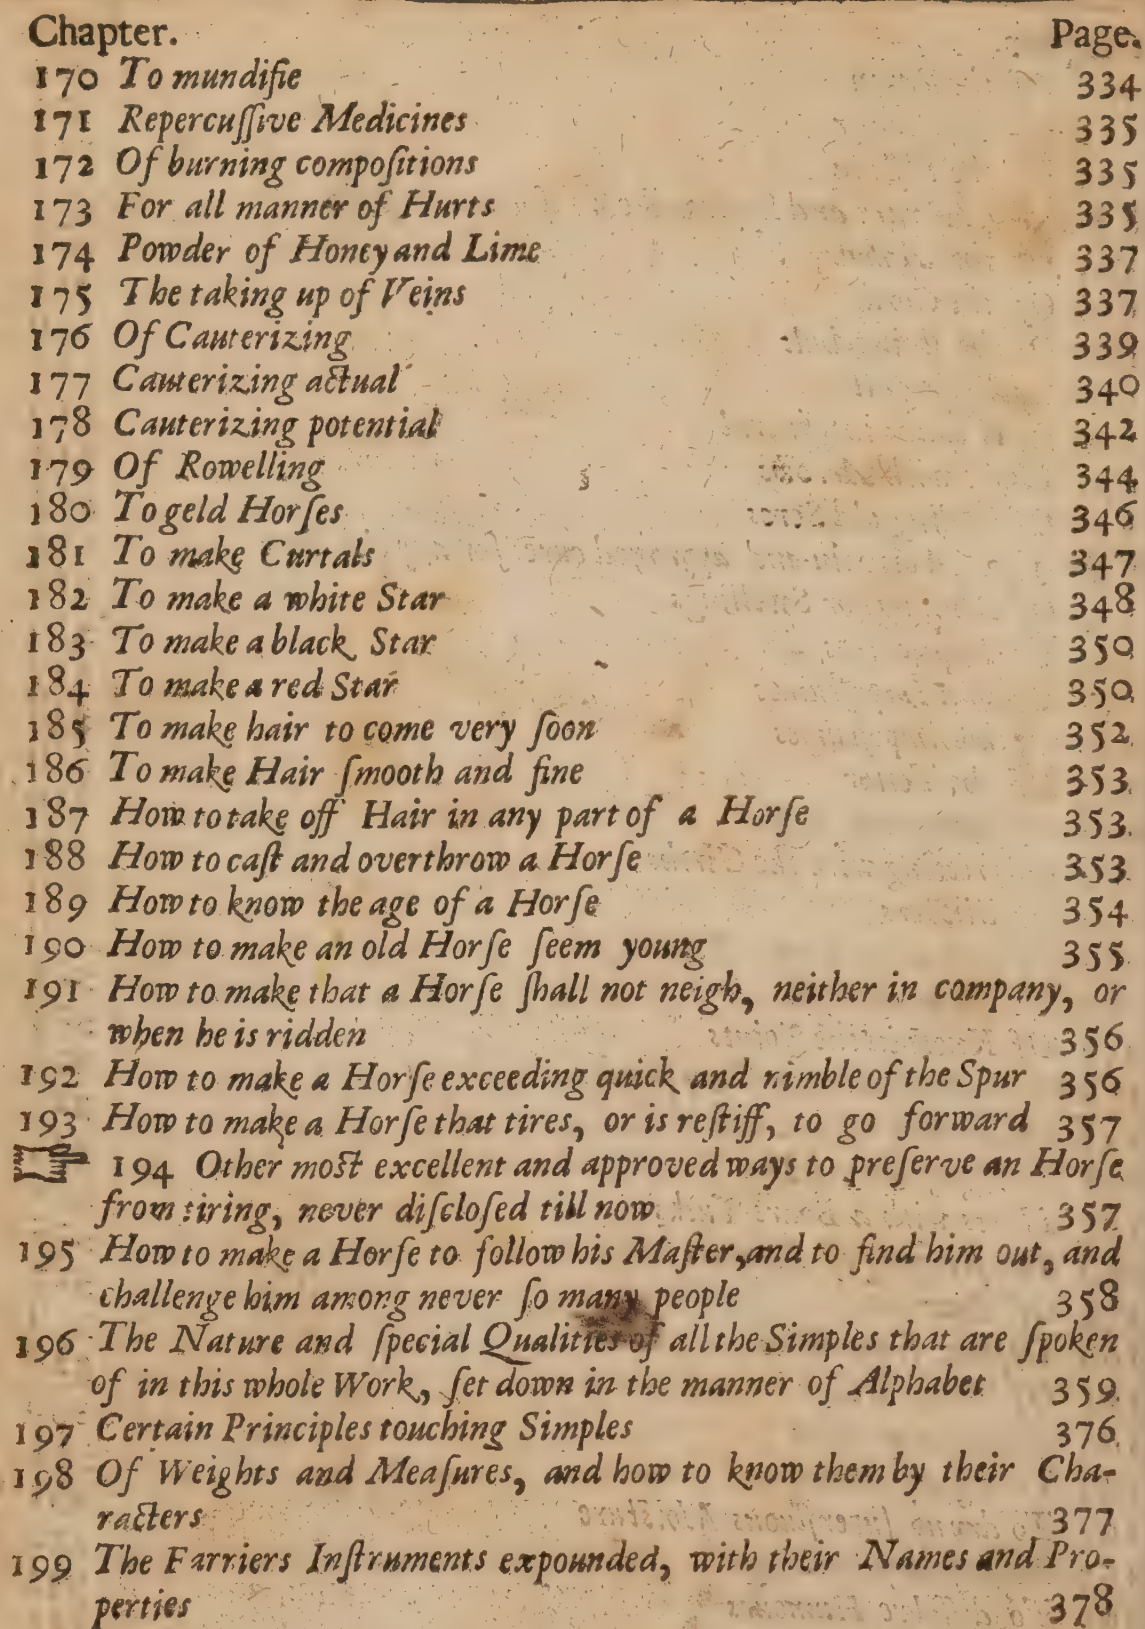 Chapter. Page.
170 To mundifie 334
171 Repercuſſive Medicines 335
172 Of burning compoſitions 335
173 For all manner of Hurts 335
174 Powder of Honey and Lime 337
175 The taking up of Veins 337
176 Of Cauterizing 339
177 Cauterizing actual 340
178 Cauterizing potential 342
179 Of Rowelling 344
180 To geld Horſes 346
181 To make Curtals 347
182 To make a white Star 348
183 To make a black Star 350
184 To make a red Star 350
185 To make hair to come very ſoon 352
186 To make Hair ſmooth and fine 353
187 How to take off Hair in any part of a Horſe 353
188 How to caſt and overthrow a Horſe 353
189 How to know the age of a Horſe 354
190 How to make an old Horſe ſeem young 355
191 How to make that a Horſe ſhall not neigh, neither in company, or
when he is ridden 356
192 How to make a Horſe exceeding quick and nimble of the Spur 356
193 How to make a Horſe that tires, or is reſtiff, to go forward 357
194 Other moſt excellent and approved ways to preſerve an Horſe
from tiring, never diſcloſed till now 357
195 How to make a Horſe to follow his Maſter, and to find him out, and
challenge him among never ſo many people 358
196 The Nature and ſpecial Qualities of all the Simples that are ſpoken
of in this whole Work, ſet down in the manner of Alphabet 359
197 Certain Principles touching Simples 376
198 Of Weights and Meaſures, and how to know them by their Cha-
racters 377
199 The Farriers Inſtruments expounded, with their Names and Pro-
perties 378